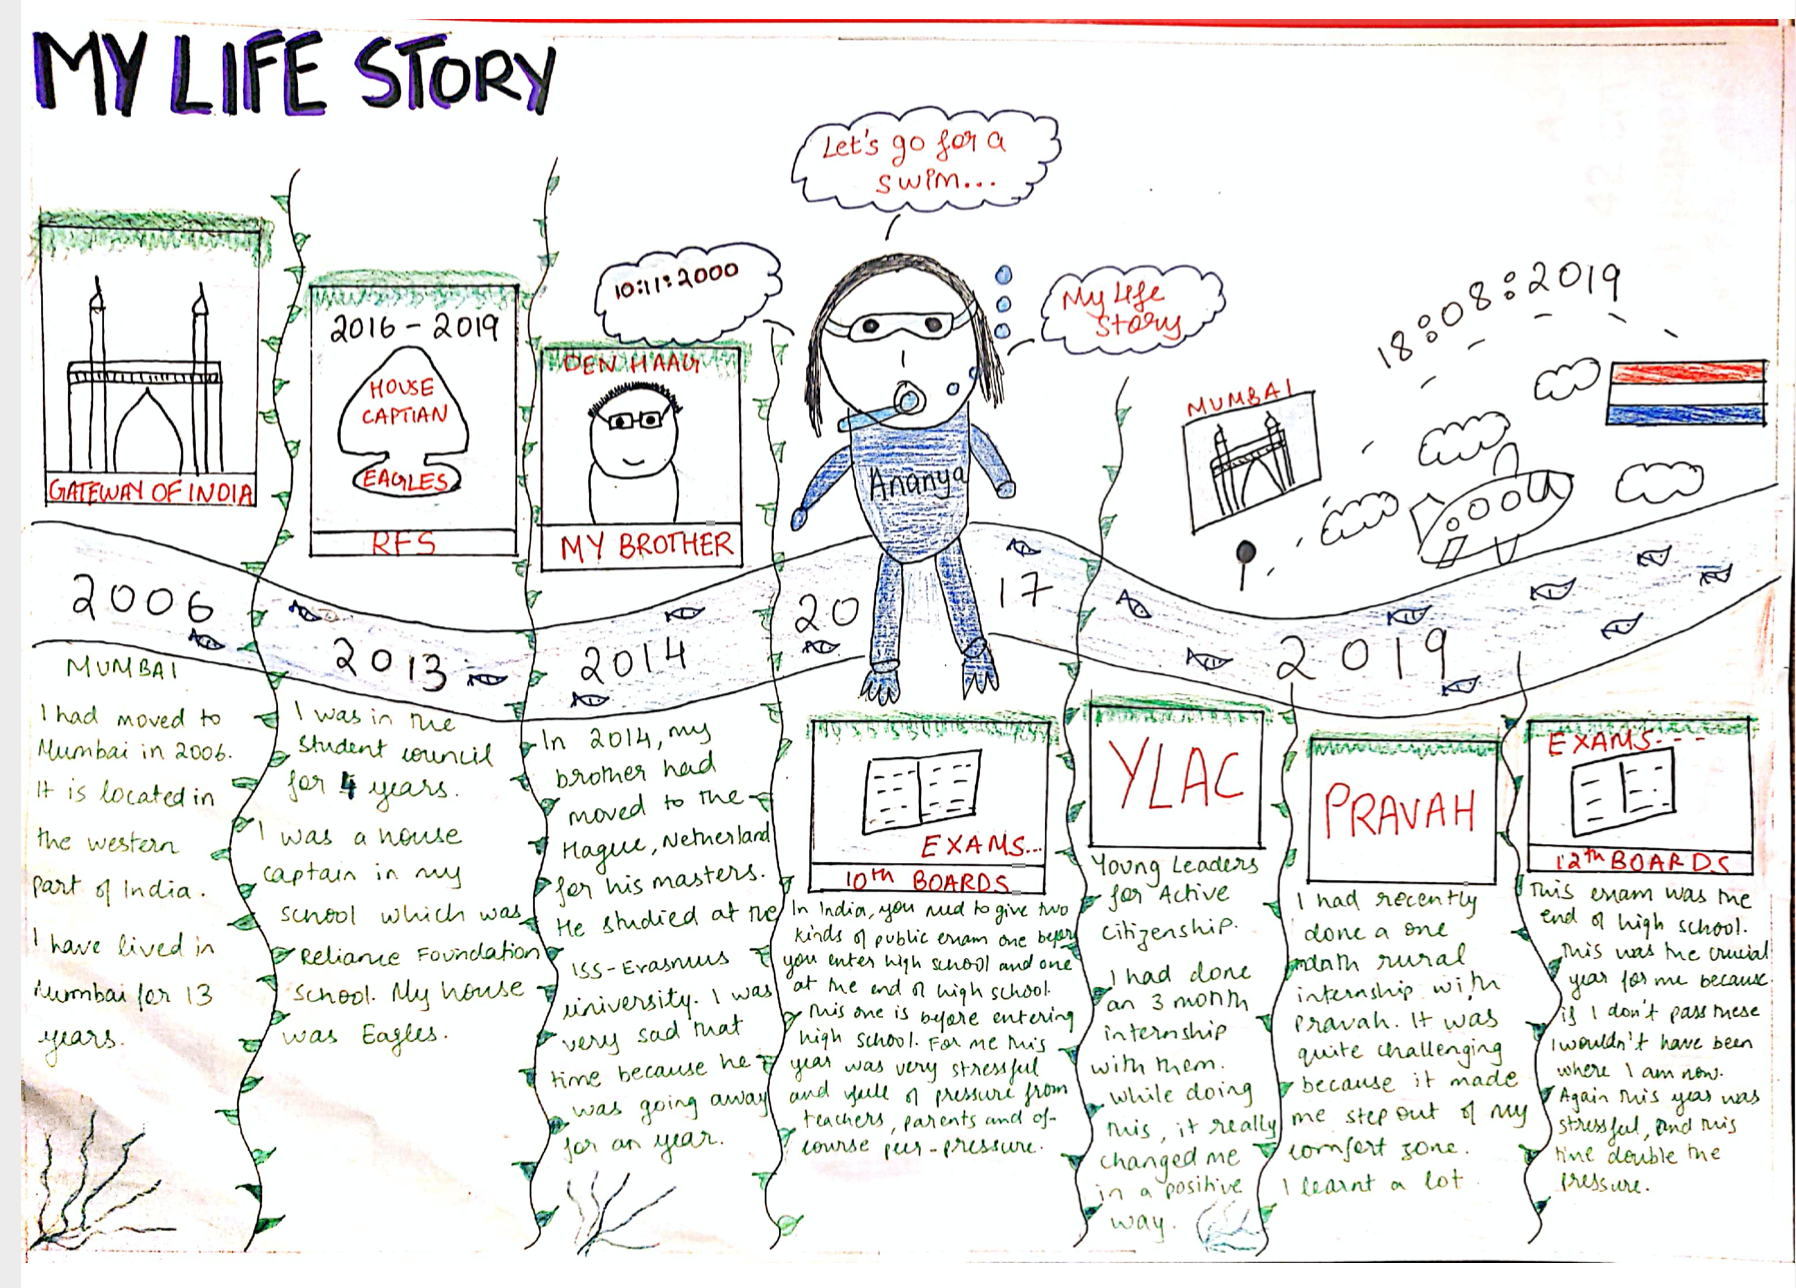 MY LIFE STORY
Let's go for a
swim...
10:11:2000
My Life
Story
18:08:2019
GATEWAY OF INDIA
2016 - 2019
HOUSE
CAPTIAN
EAGLES
RFS
DEN HAAG
MY BROTHER
Ananya
MUMBAI
2006
2013
2014
2017
2019
MUMBAI
I had moved to
Mumbai in 2006.
It is located in
the western
part of India.
I have lived in
Mumbai for 13
years.
I was in the
student council
for 4 years.
I was a house
captain in my
school which was
Reliance Foundation
School. My house
was Eagles.
In 2014, my
brother had
moved to the
Hague, Netherland
for his masters.
He studied at the
ISS-Erasmus
university. I was
very sad that
time because he
was going away
for an year.
EXAMS...
10th BOARDS
In India, you need to give two
kinds of public exam one before
you enter high school and one
at the end of high school.
This one is before entering
high school. For me this
year was very stressful
and full of pressure from
teachers, parents and of-
course peer-pressure.
YLAC
Young Leaders
for Active
citizenship.
I had done
an 3 month
internship
with them.
while doing
this, it really
changed me
in a positive
way.
PRAVAH
I had recently
done a one
month rural
internship with
Pravah. It was
quite challenging
because it made
me step out of my
comfort zone.
I learnt a lot
EXAMS---
12th BOARDS
This exam was the
end of high school.
This was the crucial
year for me because
if I don't pass these
I wouldn't have been
where I am now.
Again this year was
stressful, and this
time double the
pressure.